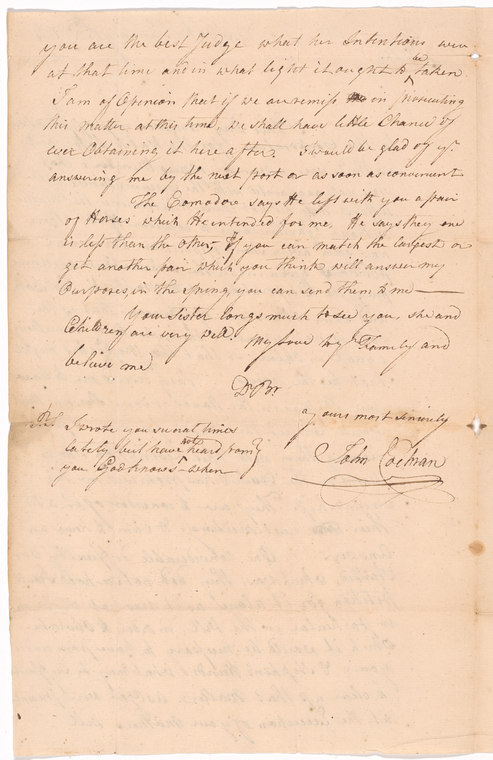 you are the best Judge what her Intentions were
at that time and in what light it ought to be taken
I am of Opinion that if we are remiss in prosecuting
this matter at this time, we shall have little Chance of
ever Obtaining it here after. I would be glad of yr.
answering me by the next post or as soon as convenient
The Comodore says He left with you a pair
of Horses which He intended for me, He says they one
is less than the other, If you can match the largest or
get another pair which you think will answer my
Purposes, in the spring, you can send them to me —
Your Sister longs much to see you, she and
Children are very well. My Love to yr Family and
believe me
Dr. Br.
Yours most sincerely
John Cochran
PS. I wrote you several times
lately but have not heard from
you God knows when